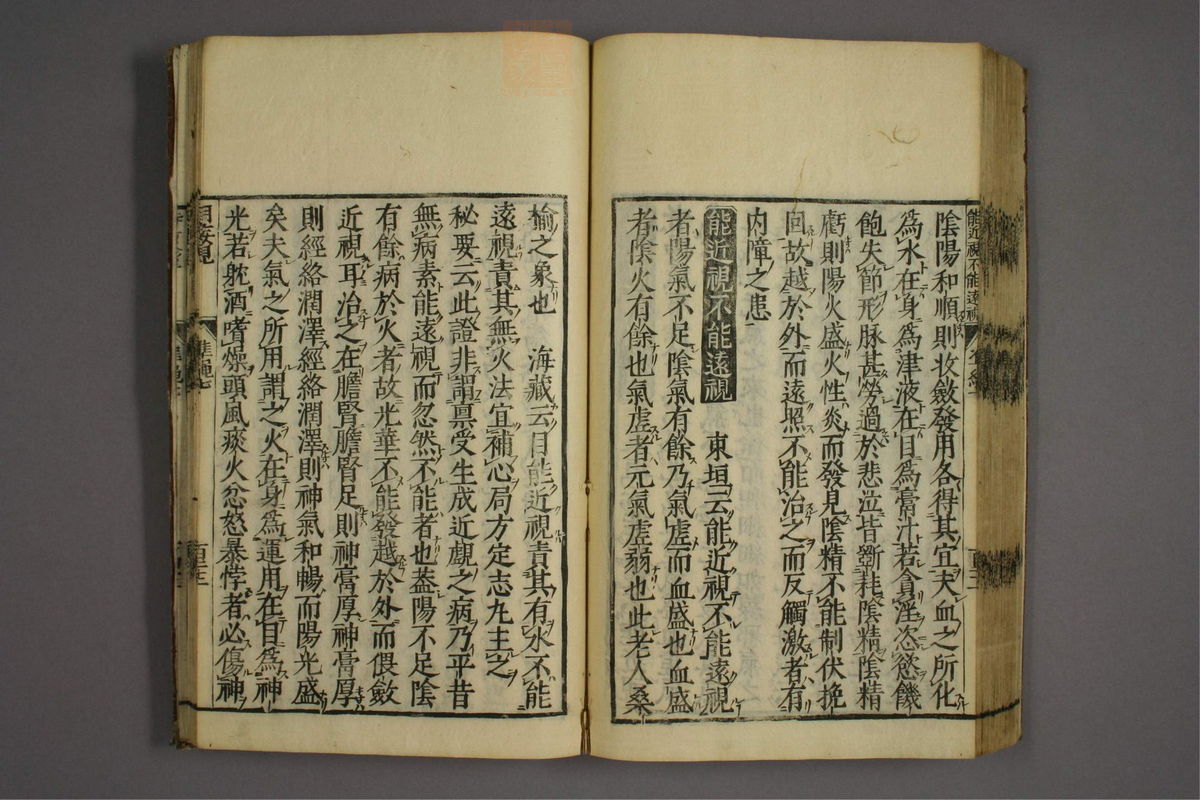 陰陽和順則收斂發用各得其宜夫血之所化
為水在身為津液在目為膏汁若貪淫恣慾饑
飽失節形脉甚勞過於悲泣皆斵耗陰精陰精
虧則陽火盛火性炎而發見陰精不能制伏挽
回故越於外而遠照不能治之而反觸激者有
内障之患
能近視不能遠視 東垣云能近視不能遠視
者陽氣不足陰氣有餘乃氣虛而血盛也血盛
者陰火有餘也氣虛者元氣虛弱也此老人桑
榆之象也 海藏云目能近視責其有水不能
遠視責其無火法宜補心局方定志丸主之
秘要云此證非謂禀受生成近覷之病乃平昔
無病素能遠視而忽然不能者也葢陽不足陰
有餘病於火者故光華不能發越於外而偎斂
近視耳治之在膽腎膽腎足則神膏厚神膏厚
則經絡潤澤經絡潤澤則神氣和暢而陽光盛
矣夫氣之所用謂之火在身為運用在目為神
光若躭酒嗜燥頭風痰火忿怒暴悖者必傷神